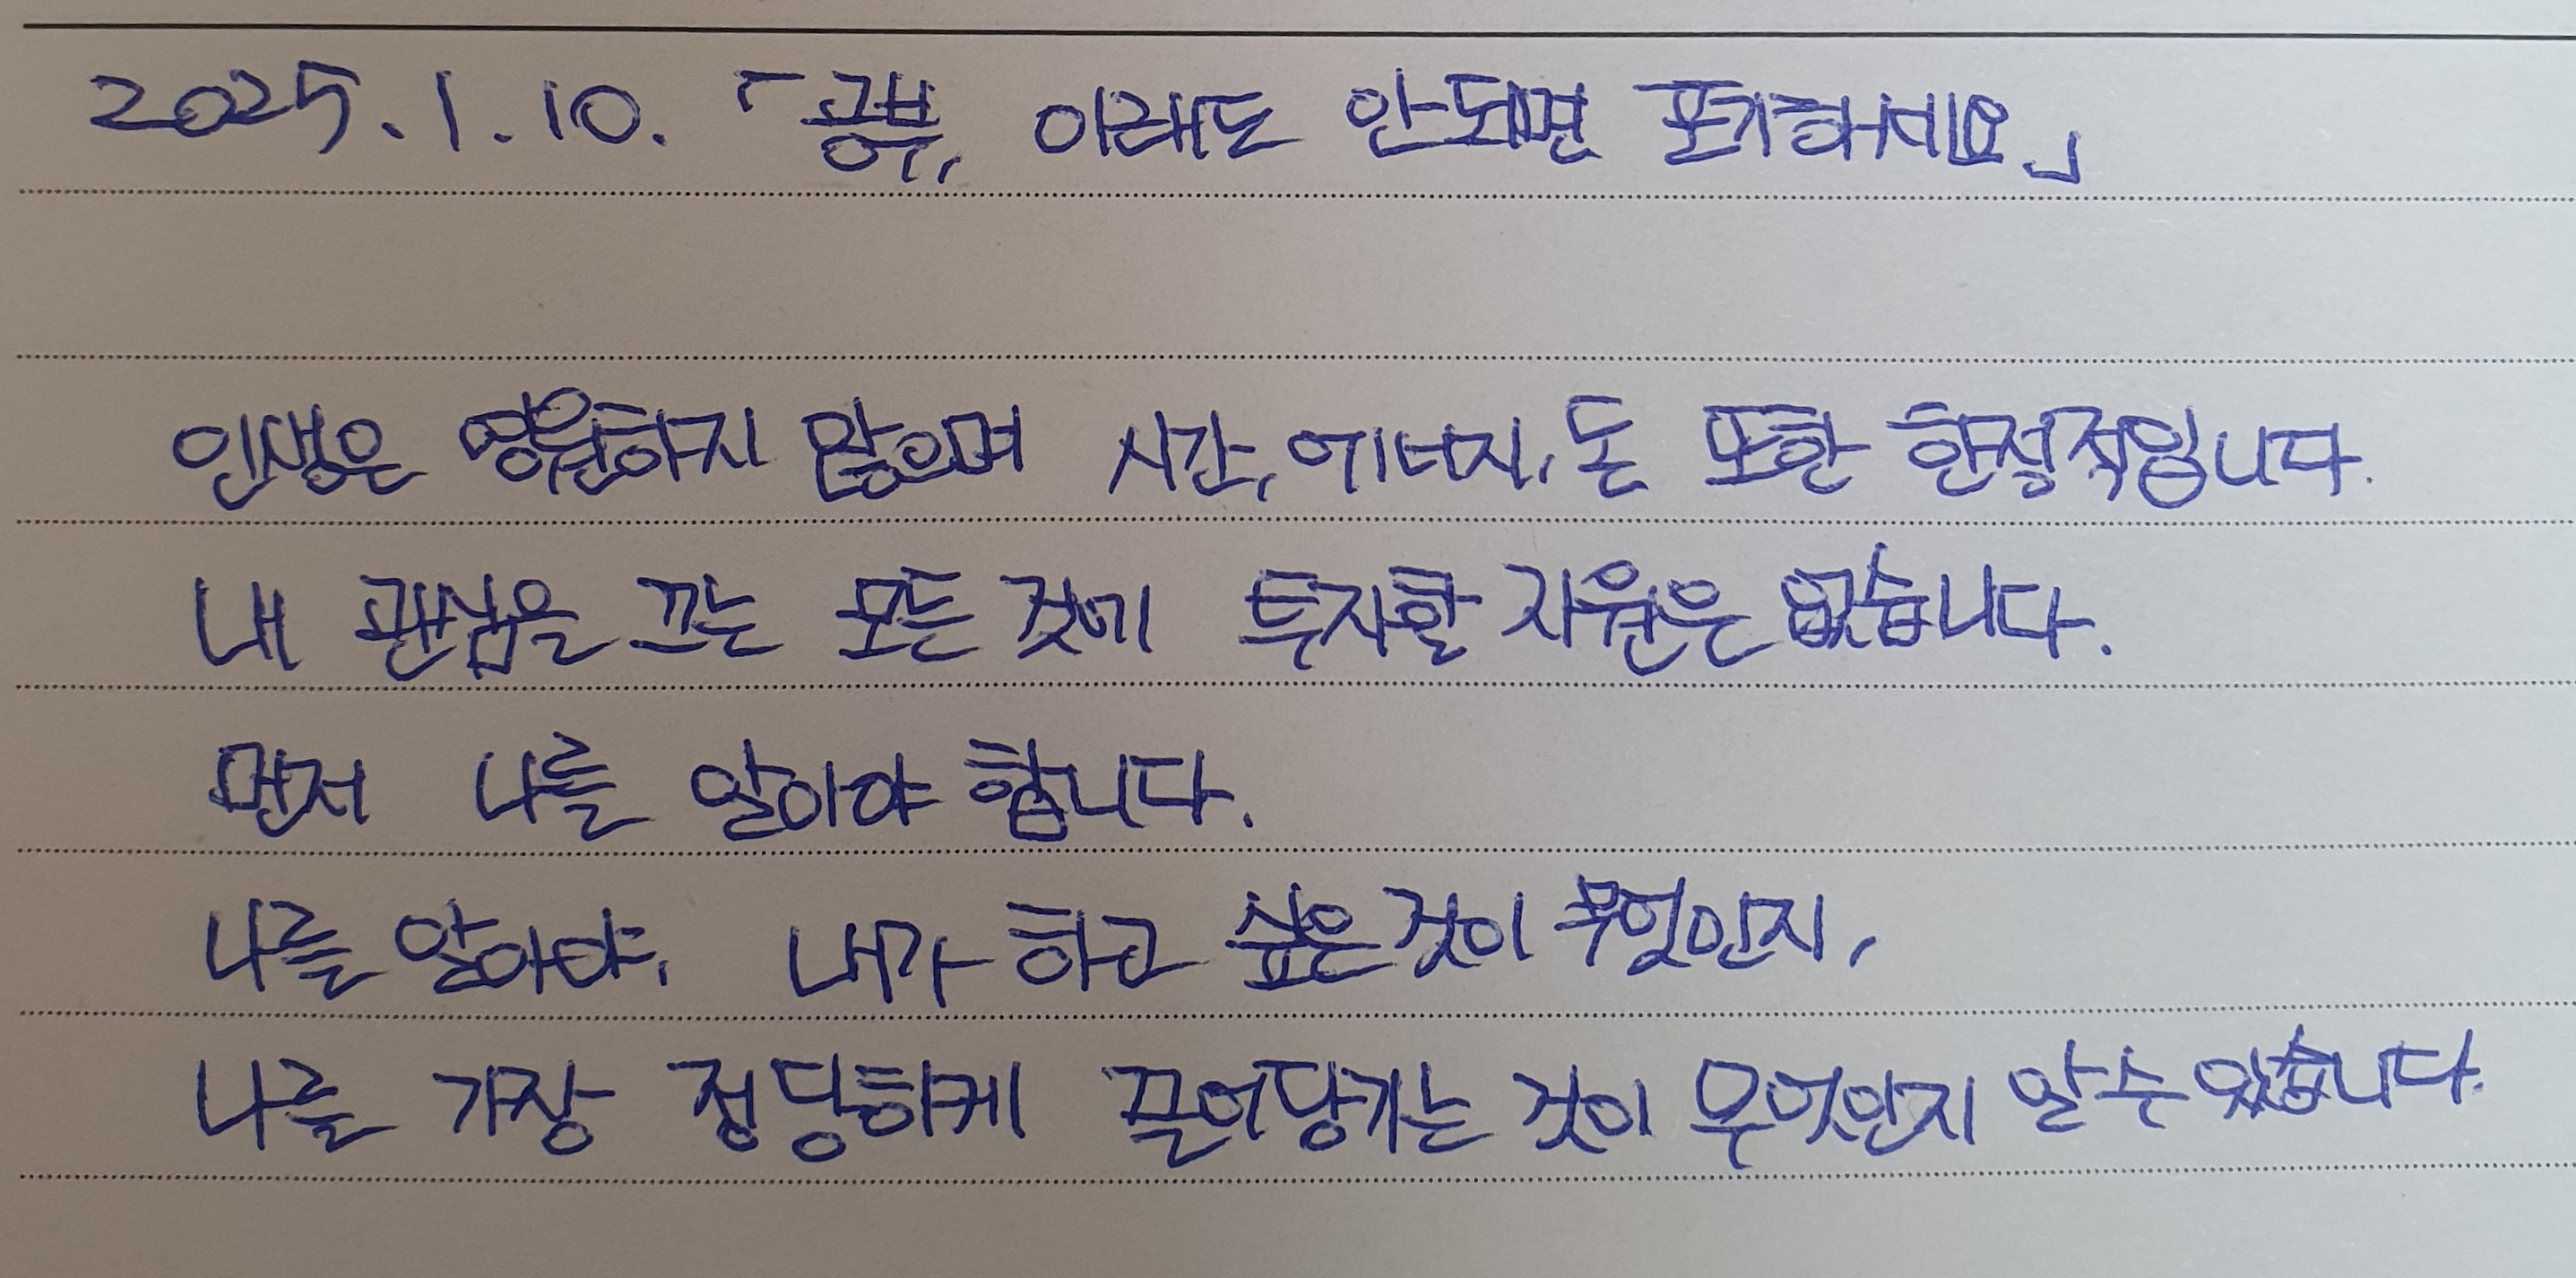 2025.1.10. 「공부, 이래도 안되면 포기하세요」
인생은 영원하지 않으며 시간, 에너지, 돈 또한 한정적입니다.
내 관심을 끄는 모든 것에 투자할 자원은 없습니다.
먼저 나를 알아야 합니다.
나를 알아야, 내가 하고 싶은 것이 무엇인지,
나를 가장 정당하게 끌어당기는 것이 무엇인지 알 수 있습니다.